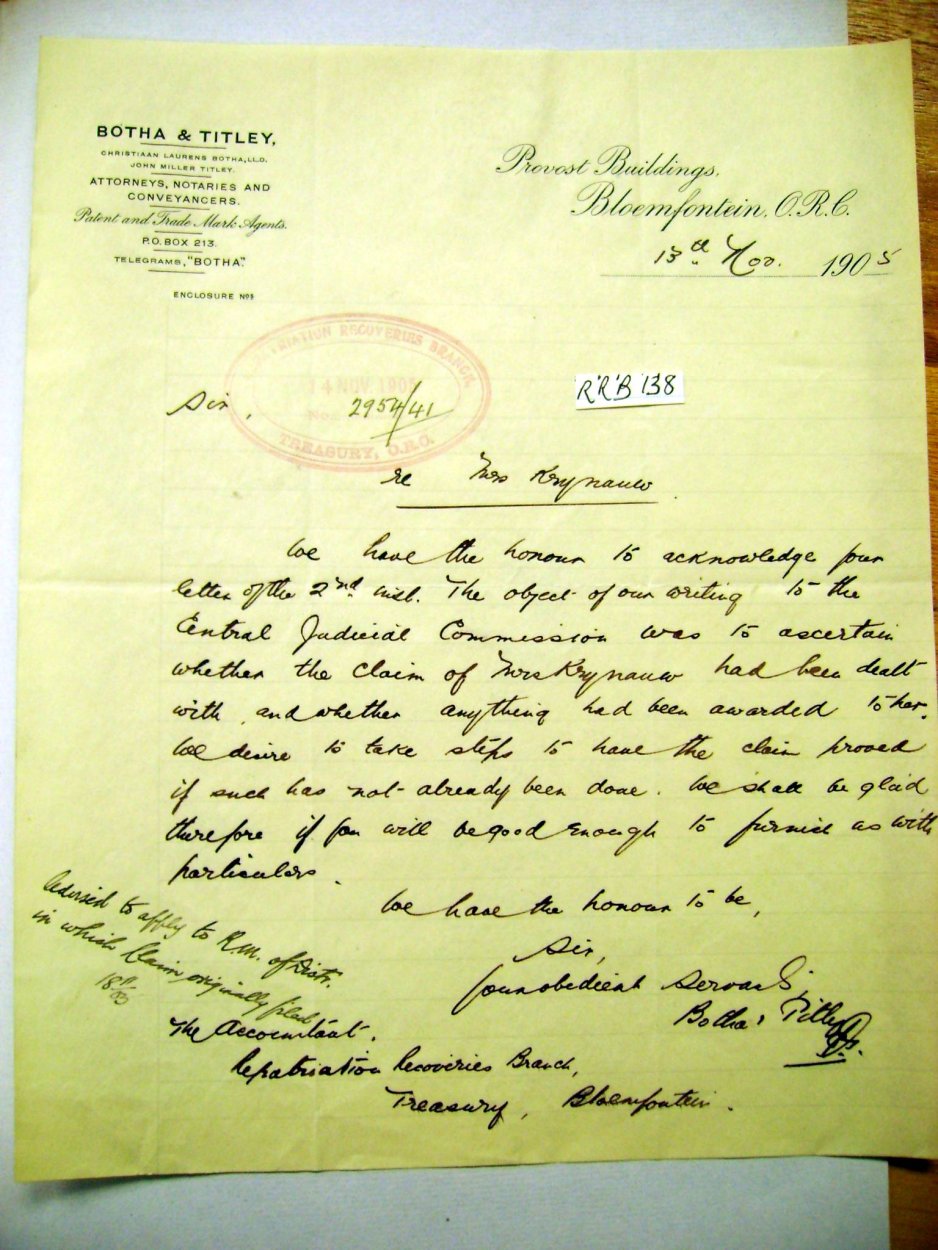 BOTHA & TITLEY,
CHRISTIAAN LAURENS BOTHA, LL.D.
JOHN MILLER TITLEY.
ATTORNEYS, NOTARIES AND
CONVEYANCERS.
Patent and Trade Mark Agents.
P.O. BOX 213.
TELEGRAMS, "BOTHA".
ENCLOSURE Nos
Provost Buildings,
Bloemfontein, O.R.C.
13th Nov. 1905
REPATRIATION RECOVERIES BRANCH
14 NOV 190
No.
2954/41
TREASURY, O.R.C.
R'R'B 138
Sir,
re Mrs Krynauw.
We have the honour to acknowledge your
letter of the 2nd inst. The object of our writing to the
Central Judicial Commission was to ascertain
whether the claim of Mrs Krynauw had been dealt
with, and whether anything had been awarded to her.
We desire to take steps to have the claim proved
if such has not already been done. We shall be glad
therefore if you will be good enough to furnish us with
particulars.
We have the honour to be,
Sir,
your obedient servants,
Botha & Titley
Advised to apply to R.M. of Distr.
in which claim originally filed
The Accountant,
Repatriation Recoveries Branch,
Treasury, Bloemfontein.